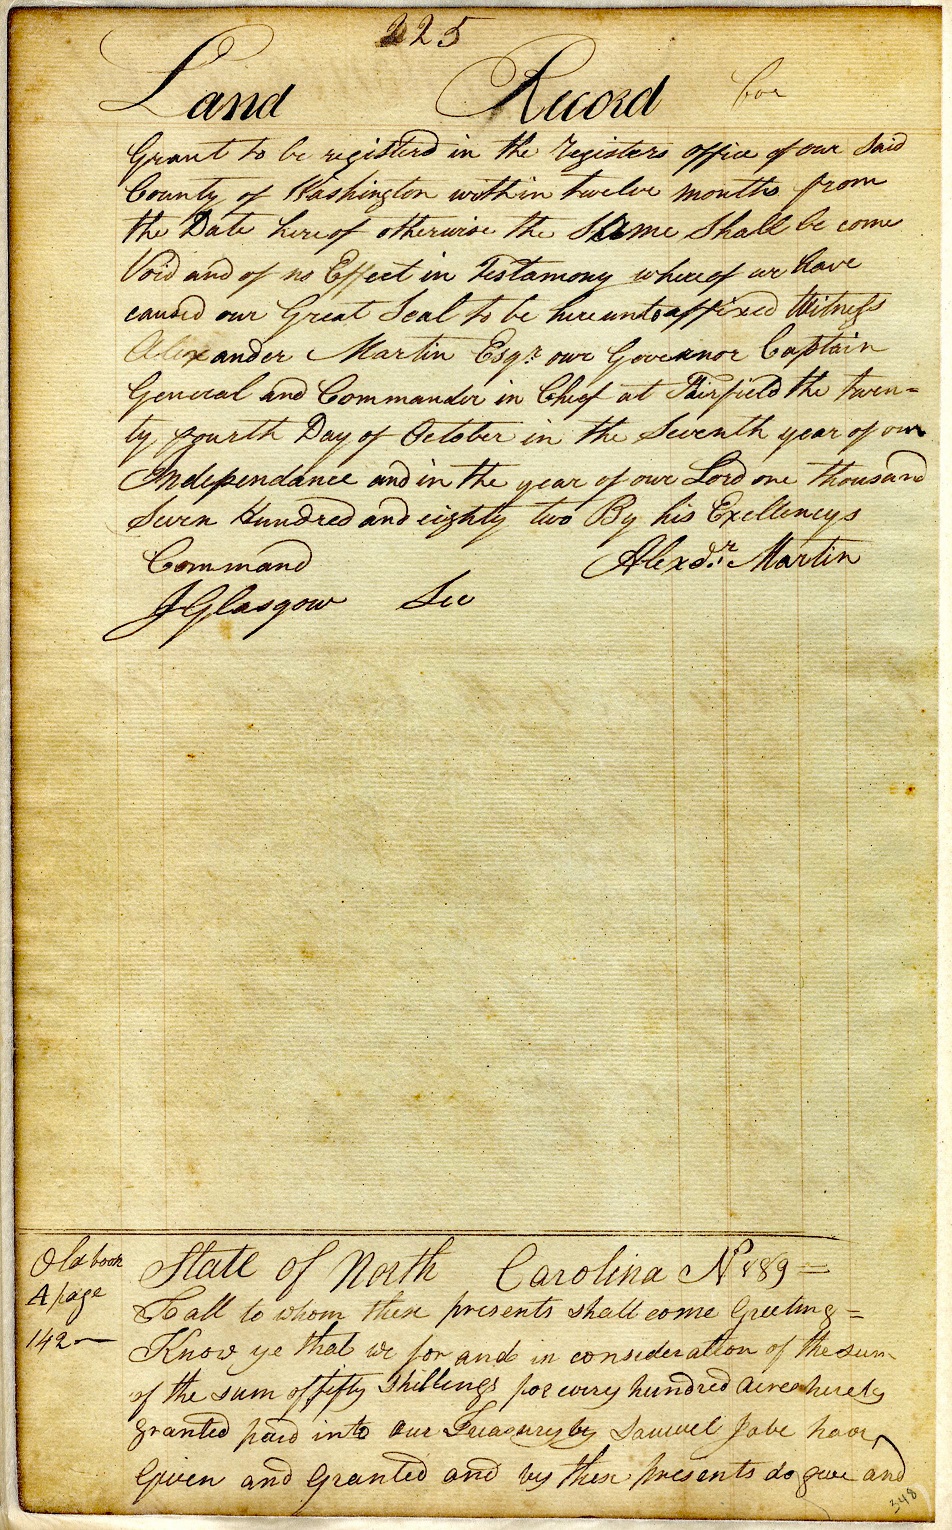 225
Land Record for
Grant to be registerd in the registers office of our Said
County of Washington within twelve months from
the Date hereof otherwise the Same Shall be come
Void and of no Effect in Testamony whereof we have
caused our Great Seal to be hereunto affixed Witness
Alexander Martin Esqr. our Governor Captain
General and Commander in Chief at Fairfield the twen=
ty fourth Day of October in the Seventh year of our
Independance and in the year of our Lord one thousand
Seven Hundred and eighty two By his Exellencys
Command Alexdr. Martin
J Glasgow Sec
Old book
A page
142
State of North Carolina No 189=
To all to whom these presents shall come Greeting=
Know ye that we for and in consideration of the sum
of the sum of fifty Shillings for every hundred acres hereby
granted paid into our Treasury by Samuel have
Given and Granted and by these presents do give and
348